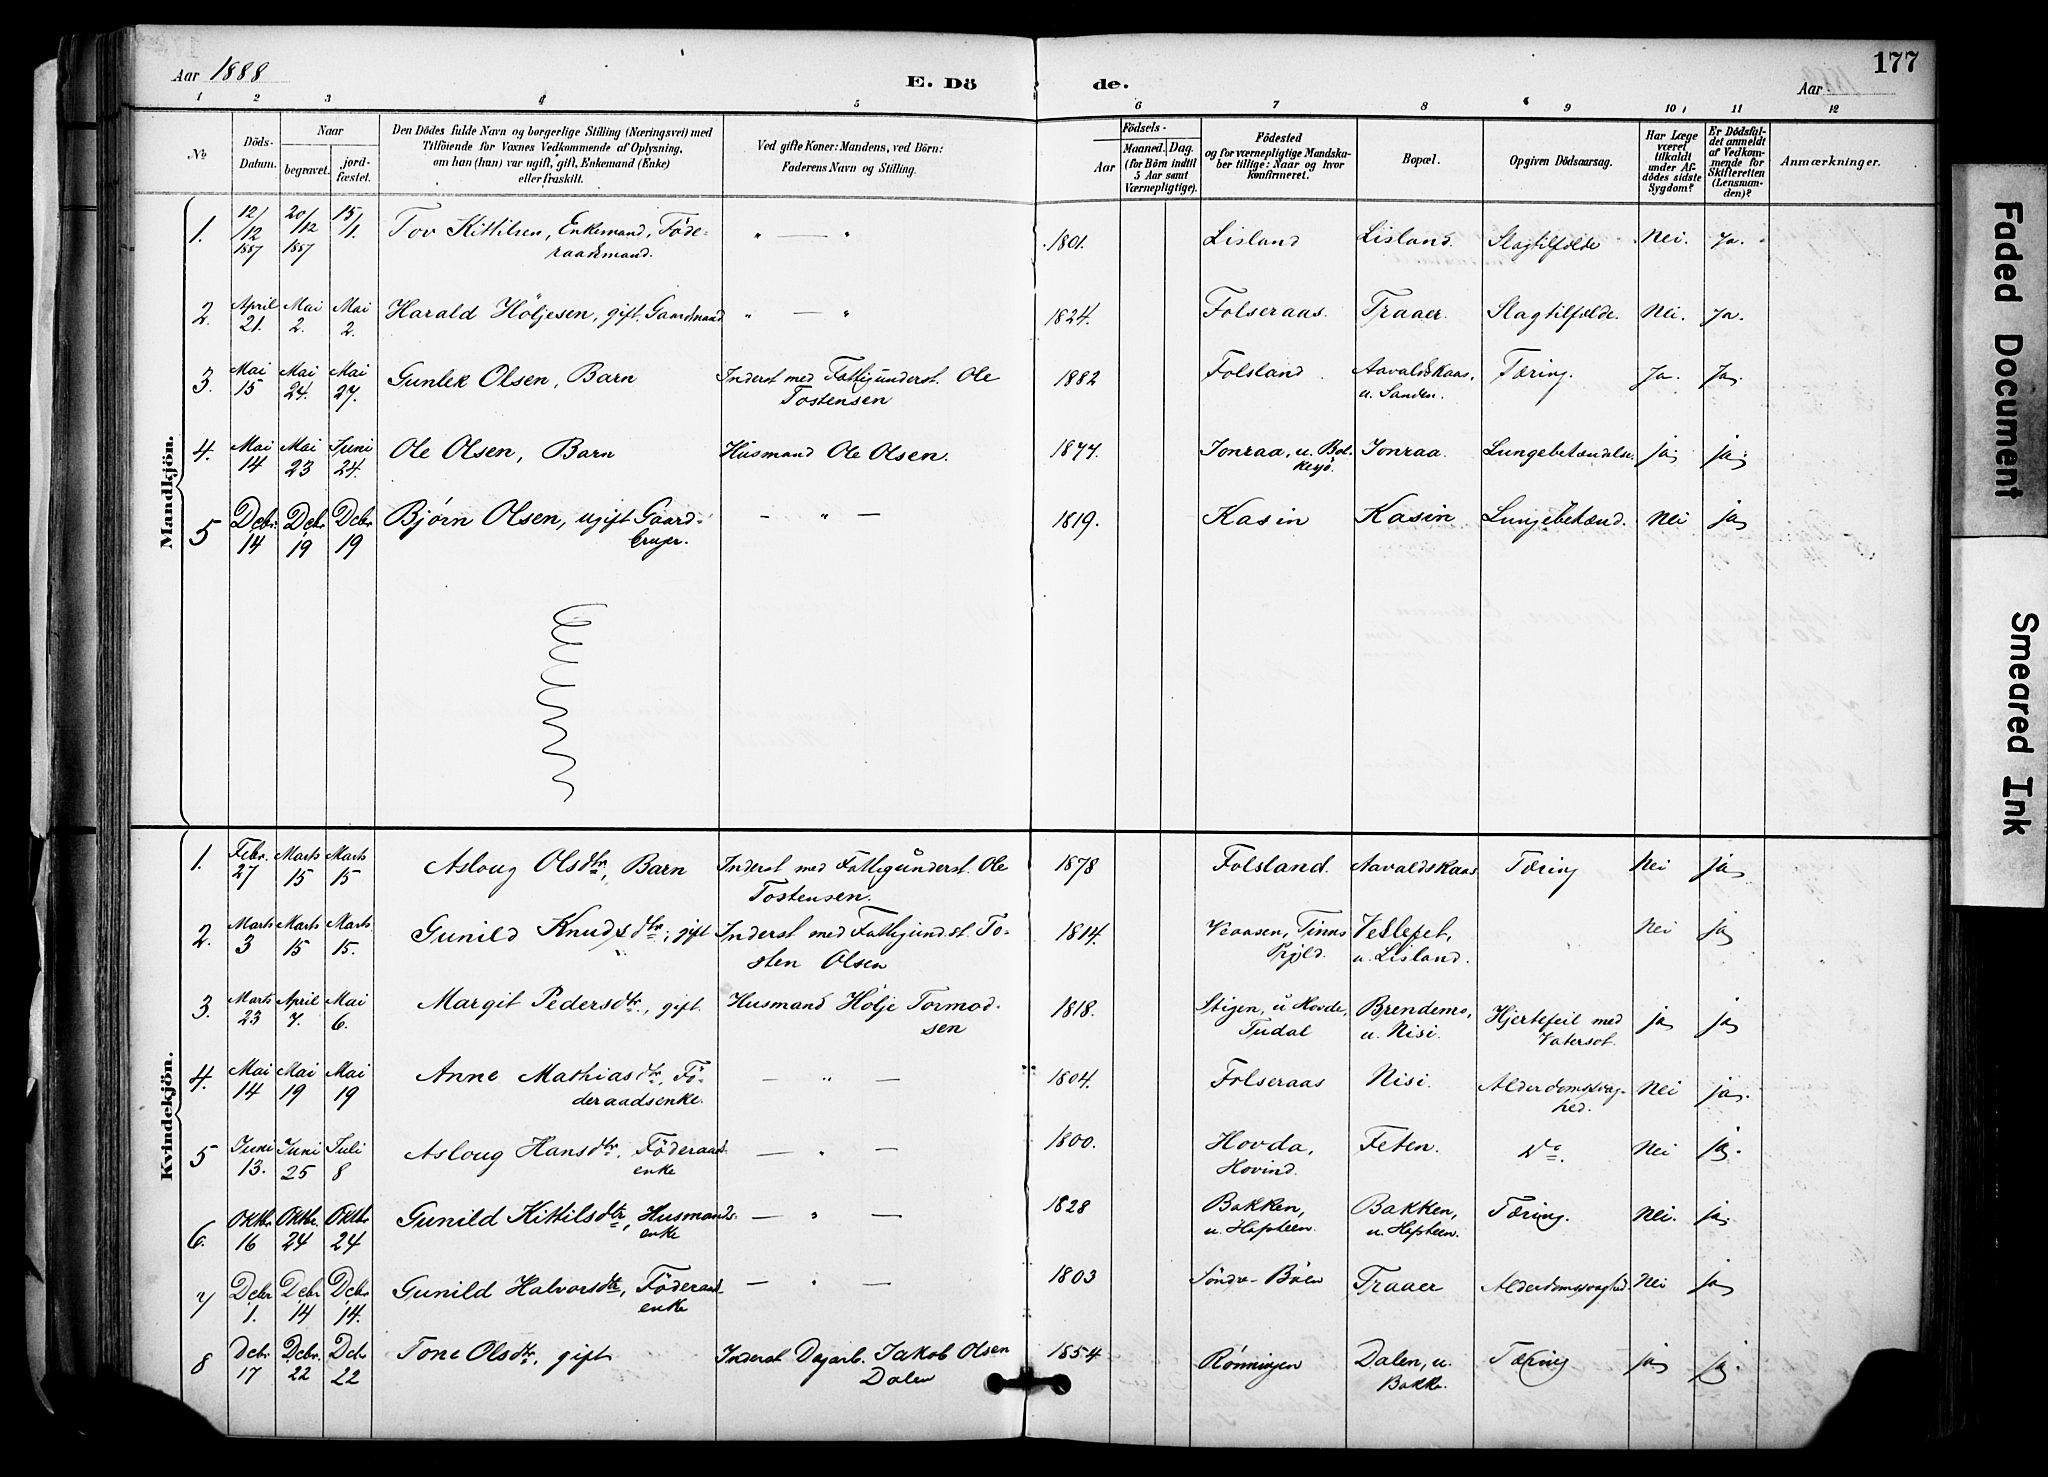 177
Aar 1888
E. Dö
de.
Aar
1 2 3 4 5 6 7 8 9 10 11 12
No
Döds-Datum.
Naar
begravet.
jord-fæstet.
Den Dödes fulde Navn og borgerlige Stilling (Næringsvei) med
Tilföiende for Voxnes Vedkommende af Oplysning,
om han (hun) var ugift, gift, Enkemand (Enke)
eller fraskilt.
Ved gifte Koner: Mandens, ved Börn:
Faderens Navn og Stilling.
Aar
Födsels-
Maaned. Dag.
(for Börn indtil
5 Aar samt
Værnepligtige).
Födested
og for værnepligtige Mandska-
ber tillige: Naar og hvor
konfirmeret.
Bopæl.
Opgiven Dödsaarsag.
Har Læge
været
tilkaldt
under Af-
dödes sidste
Sygdom?
Er Dödsfal-
det anmeldt
af Vedkom-
mende for
Skifteretten
(Lensman-
den)?
Anmærkninger.
Mandkjön.
1. 12/12 1887 20/12 1887 15/1. Tov Kittilsen, Enkemand, Föde-
raadsmand. " — " 1801. Lisland Lisland. Slagtilfælde Nei. Ja.
2. April 21. Mai 2. Mai 2. Harald Höljesen, gift. Gaardmand " — " 1824. Folseraas. Traaer. Slagtilfælde. Nei. Ja.
3. Mai 15 Mai 24. Mai 27. Gunlek Olsen, Barn Inderst med Fattigunderst. Ole
Tostensen 1882 Folsland Aavaldskaas,
u. Sanden. Tæring. Ja. Ja.
4. Mai 14 Mai 23 Juni 24. Ole Olsen, Barn Husmand Ole Olsen. 1877. Jonraa, u. Bol-
kesjö. Jonraa. Lungebetændelse ja ja
5 Decbr. 14 Decbr 19 Decbr 19 Bjørn Olsen, ugift Gaard-
bruger. — " — 1819. Kasin Kasin Lungebetænd. Nei ja
Kvindekjön.
1. Febr. 27 Marts 15 Marts 15 Asloug Olsdtr, Barn Inderst med Fattigunderst. Ole
Tostensen. 1878 Folsland. Aavaldskaas Tæring Nei ja
2. Marts 3 Marts 15 Marts 15. Gunild Knudsdtr, gift Inderst med Fattigundst. To-
sten Olsen 1814. Tinns Vesleset,
u. Lisland. Nei ja
3. Marts 23 April 7. Mai 6. Margit Pedersdtr., gift. Husmand Hölje Tormod-
sen 1818. Stigen, u Hovde,
Tudal Brendemo,
u. Nisi. Hjertefeil med
Vatersot. ja ja
4. Mai 14 Mai 19 Mai 19 Anne Mathiasdtr, Fö-
deraadsenke. — " — 1804. Folseraas Nisi. Alderdomssvag-
hed. Nei ja.
5 Juni 13. Juni 25 Juli 8 Asloug Hansdtr, Föderaads-
enke — " — 1800. Hovda,
Hovind. Feten. Do. Nei ja.
6. Oktbr 16 Oktbr. 24 Oktbr 24 Gunild Kittilsdtr, Husmands-
enke — " — 1828 Bakken,
u. Hafsteen. Bakken,
u. Hafsteen. Tæring. Nei. ja
7 Decbr 1. Decbr 14 Decbr 14. Gunild Halvorsdtr, Föderaads-
enke — " — 1803 Söndre Böen Traaer Alderdomssvaghed. Nei ja
8 Decbr 17 Decbr. 22 Decbr 22 Tone Olsdtr, gift Inderst Dagarb. Jakob Olsen
Dalen 1854 Rönningen Dalen, u.
Bakke. Tæring ja ja.
Faded Document
Smeared Ink